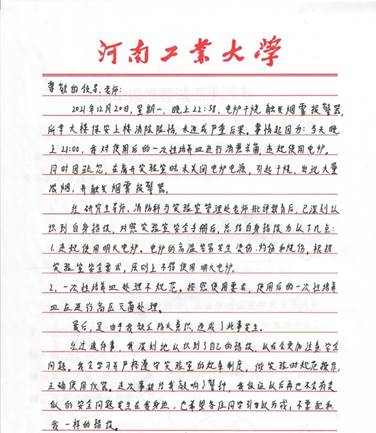 河南工業大學
尊敬的领导、老师:
2021年12月20日,星期一,晚上22:58,电炉干烧,触发烟雾报警器,
所幸大楼保安上楼消除险情,未造成严重后果。事情起因为:今天晚
上21:00,我对使用后的一次性培养皿进行消毒灭菌,违规使用电炉。
同时因疏忽,在离开实验室时未关闭电炉电源,引起干烧,出现大量
浓烟,并触发烟雾报警器。
经研究生导师、消防科与实验室管理处老师批评教育后,已深刻认
识到自身错误,对照实验室安全手册后,总结自身错误为以下几点:
1.违规使用明火电炉。电炉的高温容易发生烫伤、灼伤和烧伤。根据
实验室安全要求,原则上不得使用明火电炉。
2、一次性培养皿处理不规范。按照使用要求,使用后的一次性培养
皿应进行高压灭菌处理。
最后,是由于我缺乏防火意识,造成了此事发生。
经过这件事,我深刻地认识到了自己的错误,以后会更加注意安全
问题。我会学习并严格遵守实验室的规章制度,做实验时规范操作,
正确使用仪器。这次事故给我敲响了警钟,我保证以后再也不会有类
似的安全问题发生在我身上,也希望各位同学引以为戒,不要犯和
我一样的错误。